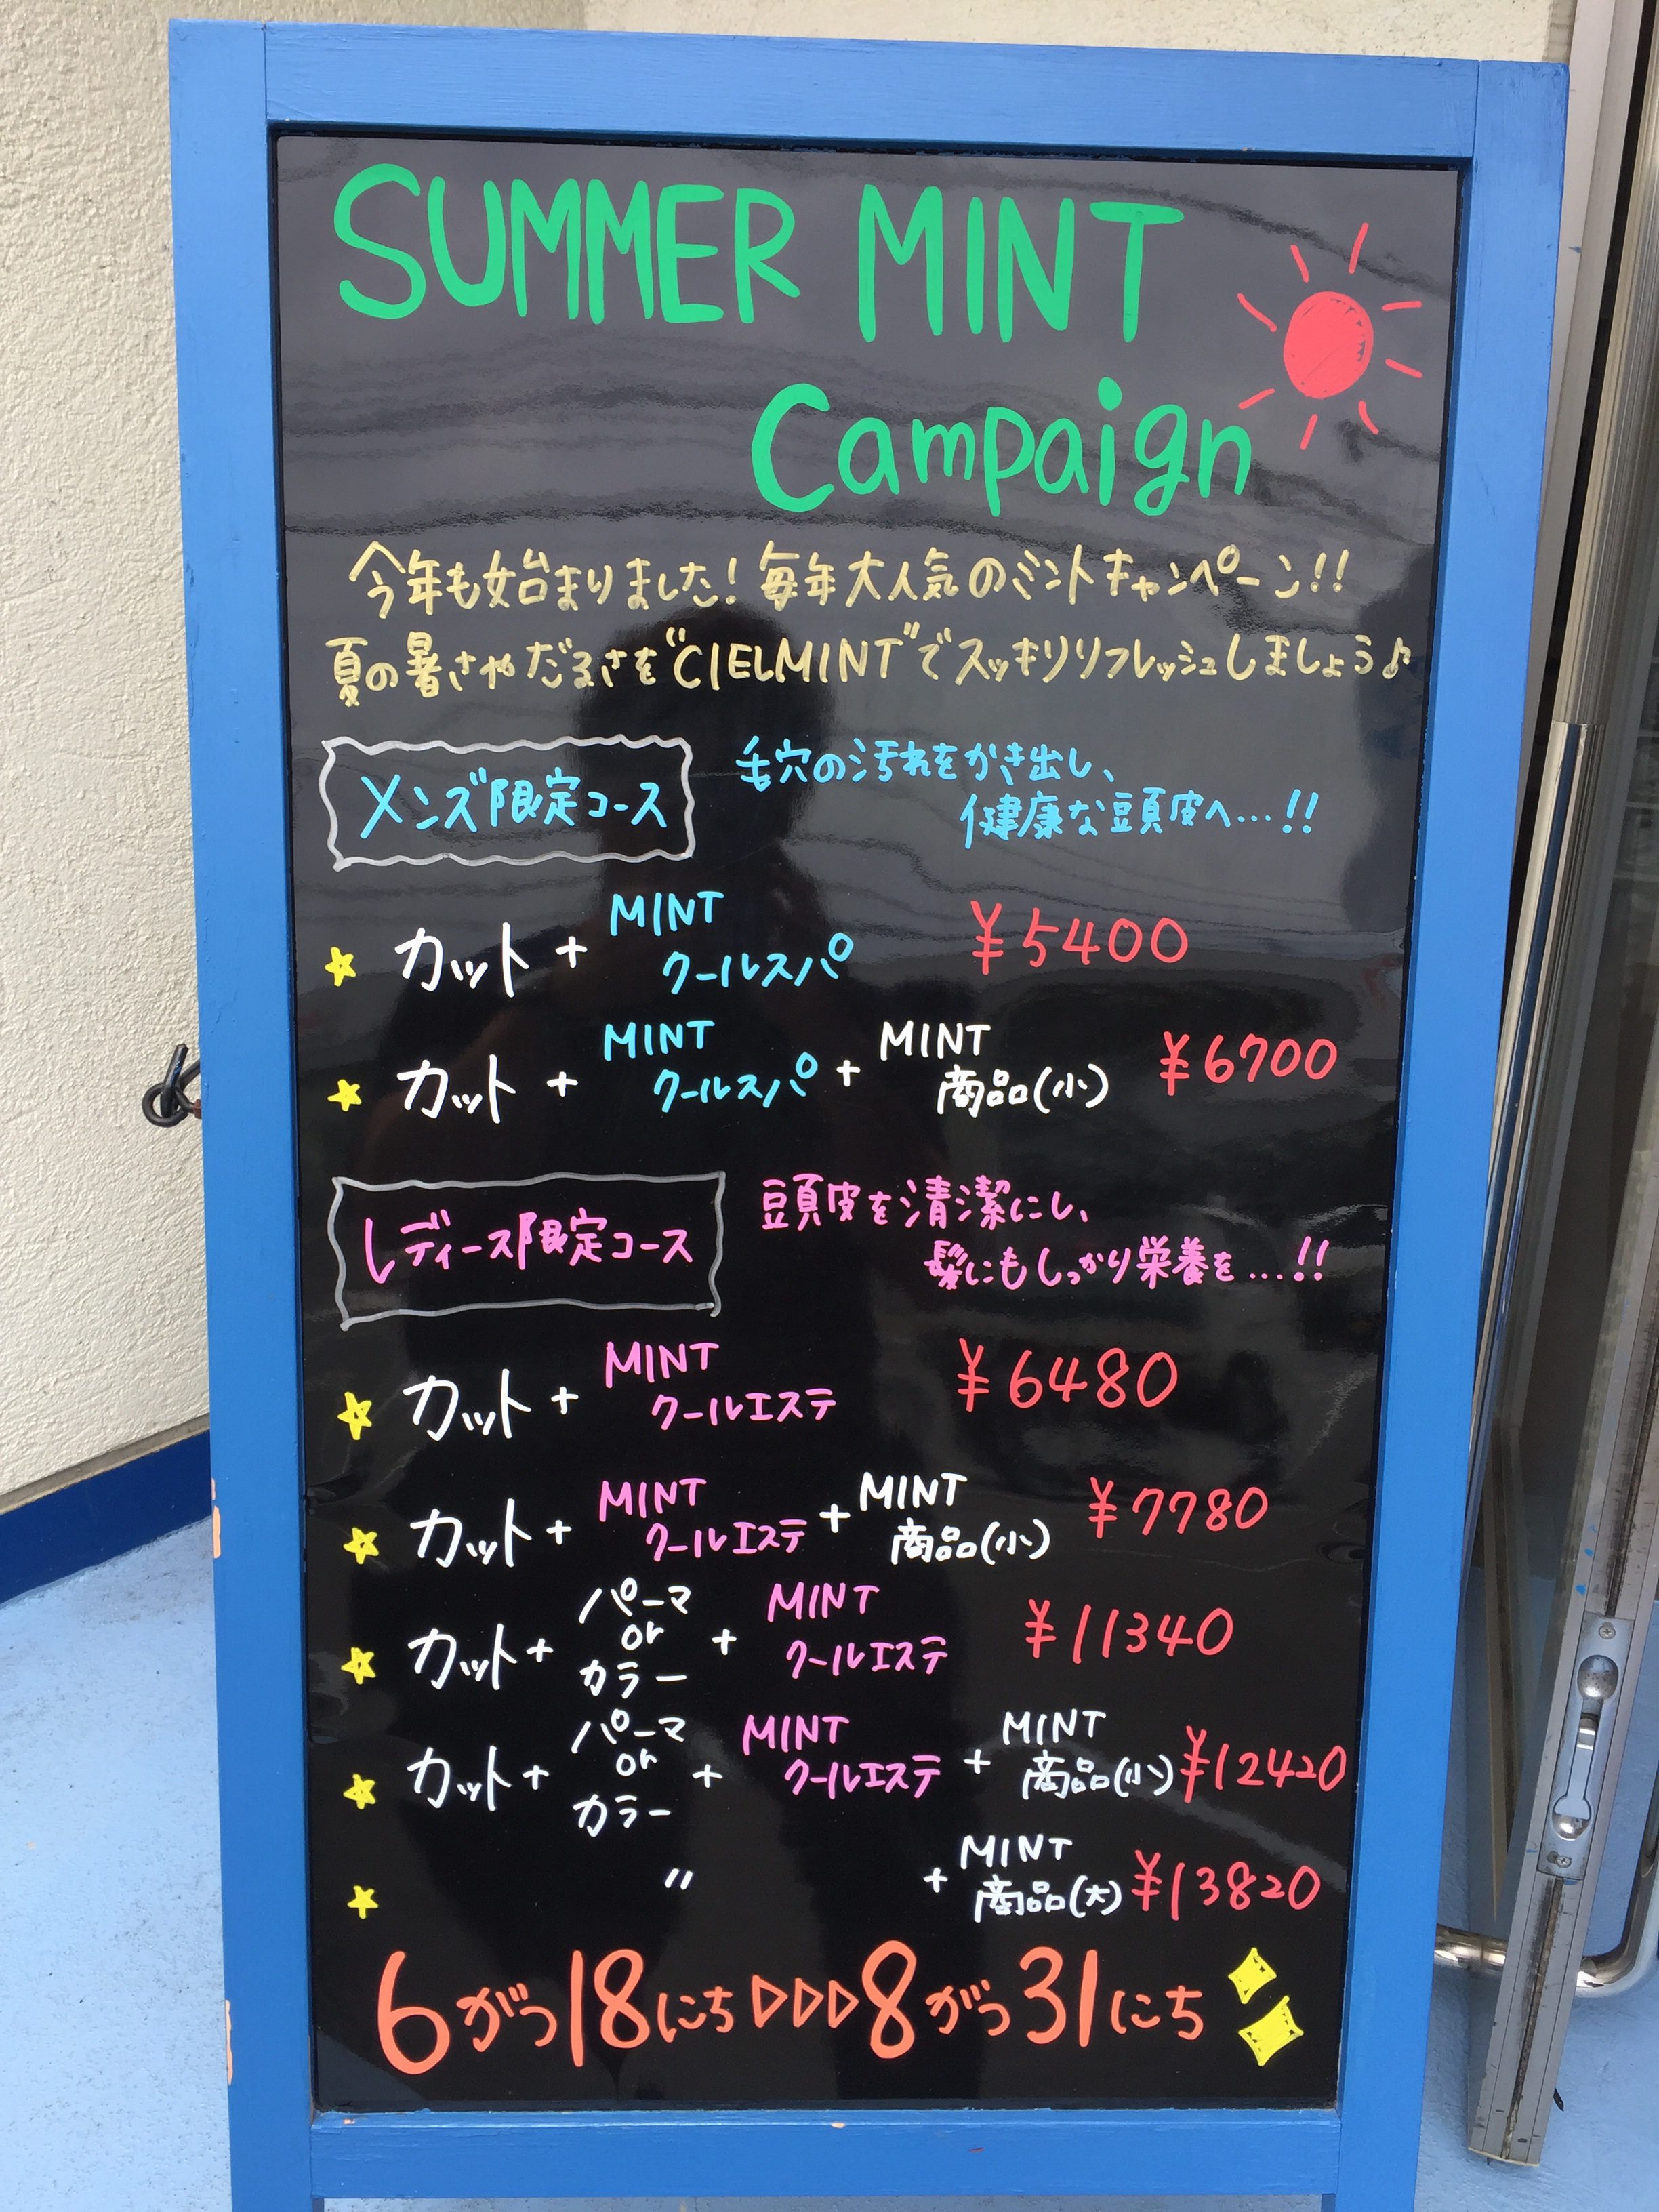 SUMMER MINT
Campaign
今年も始まりました!毎年大人気のミントキャンペーン!!
夏の暑さやだるさを"CIELMINT"でスッキリリフレッシュしましょう♪
メンズ限定コース
毛穴の汚れをかき出し、
健康な頭皮へ…!!
カット+MINTクールスパ ¥5400
カット+MINTクールスパ+MINT商品(小) ¥6700
レディース限定コース
頭皮を清潔にし、
髪にもしっかり栄養を…!!
カット+MINTクールエステ ¥6480
カット+MINTクールエステ+MINT商品(小) ¥7780
カット+パーマorカラー+MINTクールエステ ¥11340
カット+パーマorカラー+MINTクールエステ+MINT商品(小) ¥12420
〃 +MINT商品(大) ¥13820
6がつ18にち▷▷▷8がつ31にち